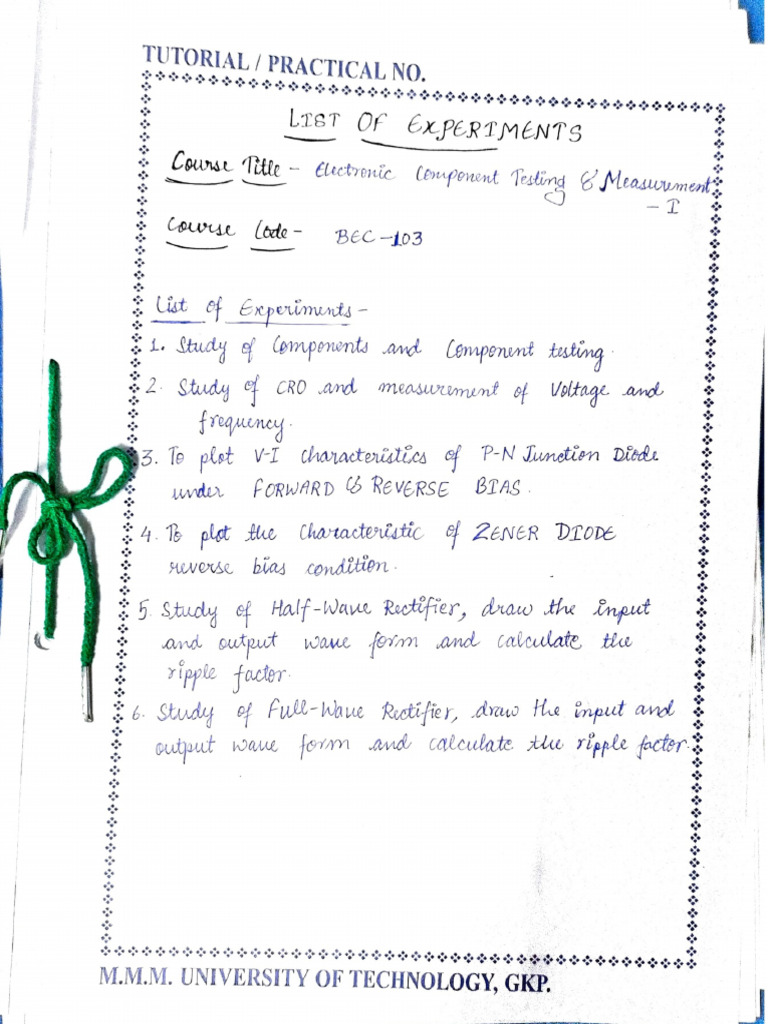 TUTORIAL / PRACTICAL NO.
LIST OF EXPERIMENTS
Course Title - Electronic Component Testing & Measurement
- I
Course Code - BEC-103
List of Experiments -
1. Study of Components and Component testing.
2. Study of CRO and measurement of Voltage and
frequency.
3. To plot V-I characteristics of P-N Junction Diode
under FORWARD & REVERSE BIAS.
4. To plot the Characteristic of ZENER DIODE
reverse bias condition.
5. Study of Half-Wave Rectifier, draw the input
and output wave form and calculate the
ripple factor.
6. Study of Full-Wave Rectifier, draw the input and
output wave form and calculate the ripple factor.
M.M.M. UNIVERSITY OF TECHNOLOGY, GKP.